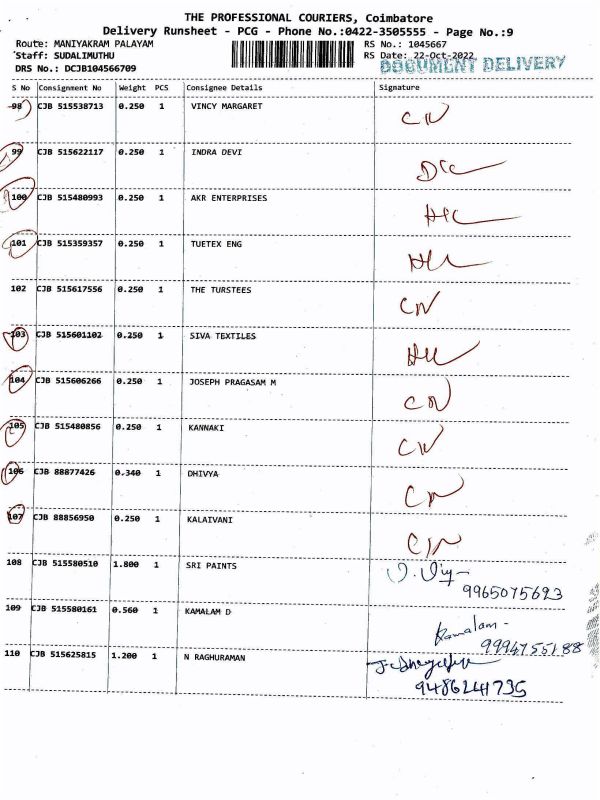 THE PROFESSIONAL COURIERS, Coimbatore
Delivery Runsheet - PCG - Phone No.:0422-3505555 - Page No.:9
Route: MANIYAKRAM PALAYAM RS No.: 1045667
Staff: SUDALIMUTHU RS Date: 22-Oct-2022
DRS No.: DCJB104566709 DOCUMENT DELIVERY
S No Consignment No Weight PCS Consignee Details Signature
98 CJB 515538713 0.250 1 VINCY MARGARET CN
99 CJB 515622117 0.250 1 INDRA DEVI
100 CJB 515480993 0.250 1 AKR ENTERPRISES
101 CJB 515359357 0.250 1 TUETEX ENG
102 CJB 515617556 0.250 1 THE TURSTEES CN
103 CJB 515601102 0.250 1 SIVA TEXTILES
104 CJB 515606266 0.250 1 JOSEPH PRAGASAM M CN
105 CJB 515480856 0.250 1 KANNAKI CN
106 CJB 88877426 0.340 1 DHIVYA CN
107 CJB 88856950 0.250 1 KALAIVANI CN
108 CJB 515580510 1.800 1 SRI PAINTS
9965075693
109 CJB 515580161 0.560 1 KAMALAM D Kamalam -
9994755188
110 CJB 515625815 1.200 1 N RAGHURAMAN
9486241735